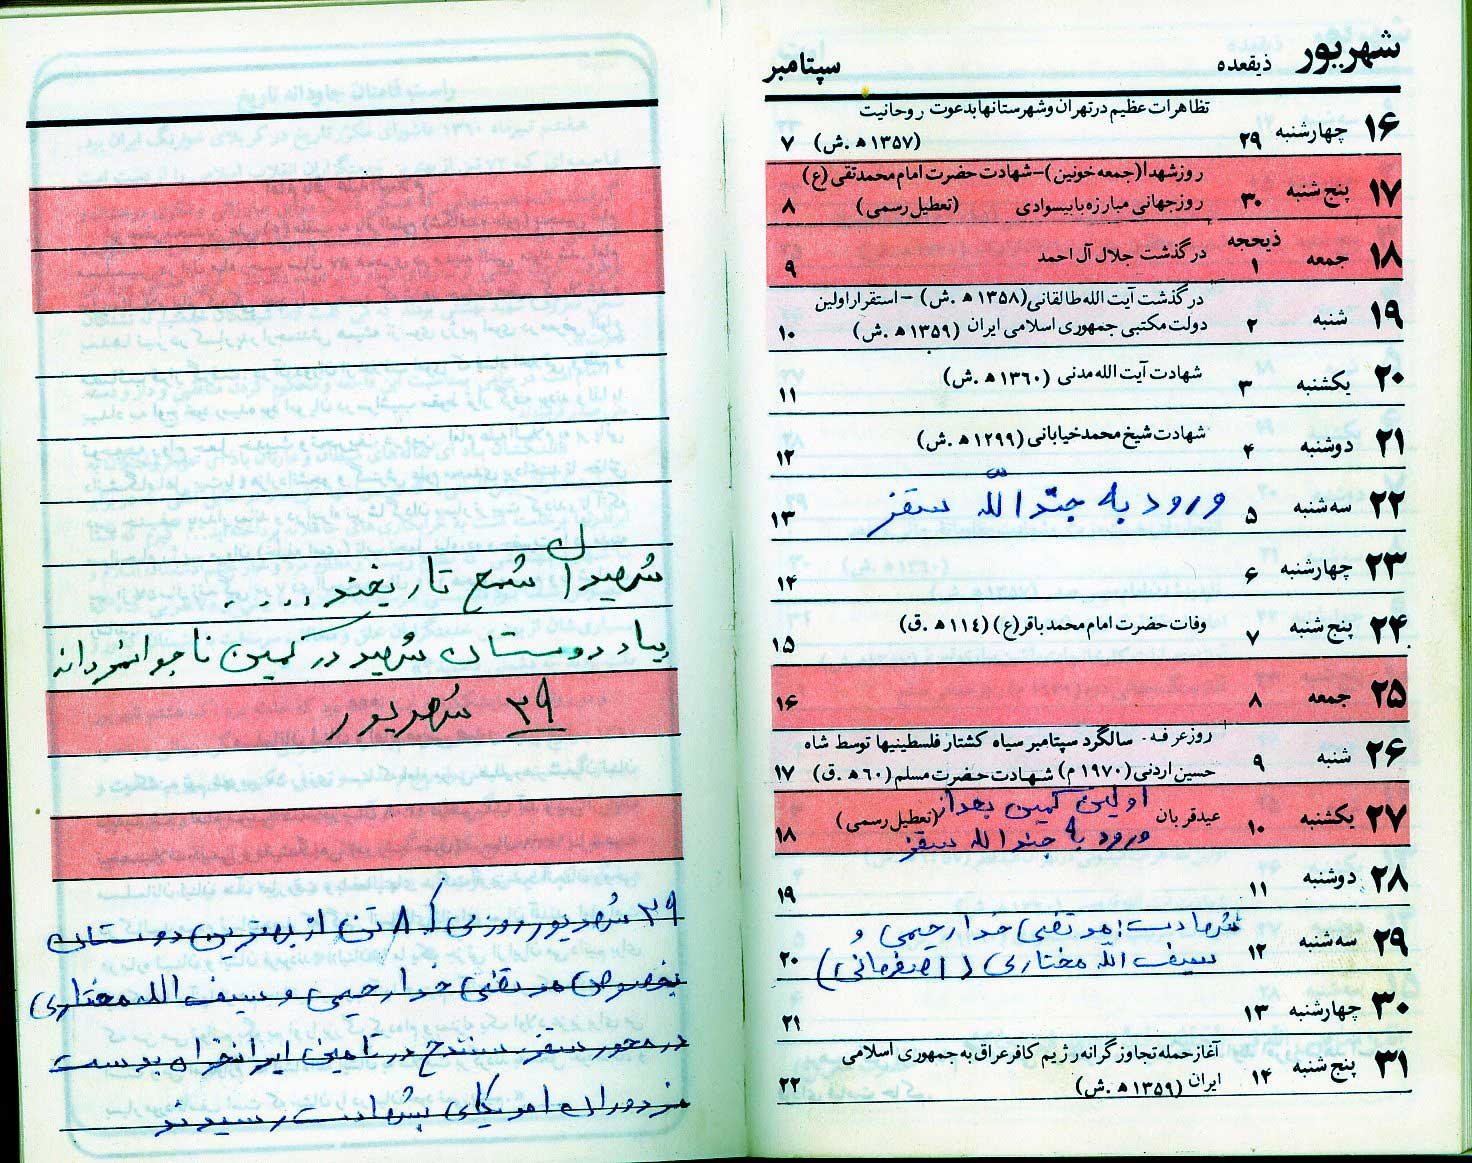 شهریور ذیقعده سپتامبر
تظاهرات عظیم در تهران و شهرستانها بدعوت روحانیت
۱۶ چهارشنبه ۲۹ (۱۳۵۷ ه‍.ش) ۷
روز شهدا (جمعه خونین)-شهادت حضرت امام محمدتقی (ع)
۱۷ پنج شنبه ۳۰ روز جهانی مبارزه با بیسوادی (تعطیل رسمی) ۸
ذیحجه
۱۸ جمعه ۱ درگذشت جلال آل احمد ۹
درگذشت آیت الله طالقانی (۱۳۵۸ ه‍.ش) -استقرار اولین
۱۹ شنبه ۲ دولت مکتبی جمهوری اسلامی ایران (۱۳۵۹ ه‍.ش) ۱۰
۲۰ یکشنبه ۳ شهادت آیت الله مدنی (۱۳۶۰ ه‍.ش) ۱۱
۲۱ دوشنبه ۴ شهادت شیخ محمد خیابانی (۱۲۹۹ ه‍.ش) ۱۲
۲۲ سه شنبه ۵ ورود به جندالله سقز ۱۳
۲۳ چهارشنبه ۶ ۱۴
۲۴ پنج شنبه ۷ وفات حضرت امام محمد باقر (ع) (۱۱۴ ه‍.ق) ۱۵
۲۵ جمعه ۸ ۱۶
روز عرفه- سالگرد سپتامبر سیاه کشتار فلسطینیها توسط شاه
۲۶ شنبه ۹ حسین اردنی (۱۹۷۰ م) شهادت حضرت مسلم (۶۰ ه‍.ق) ۱۷
اولین کمین بعد از
۲۷ یکشنبه ۱۰ عید قربان (تعطیل رسمی) ۱۸
ورود به جندالله سقز
۲۸ دوشنبه ۱۱ ۱۹
شهادت: مرتضی خدارحیمی و
۲۹ سه شنبه ۱۲ سیف الله مختاری (اصفهانی) ۲۰
۳۰ چهارشنبه ۱۳ ۲۱
آغاز حمله تجاوزگرانه رژیم کافر عراق به جمهوری اسلامی
۳۱ پنج شنبه ۱۴ ایران (۱۳۵۹ ه‍.ش) ۲۲
شهیدان شمع تاریخند....
بیاد دوستان شهید در کمین ناجوانمردانه
۲۹ شهریور
۲۹ شهریور روزی که ۸ تن از بهترین دوستان
بخصوص مرتضی خدارحیمی و سیف الله مختاری
در محور سقز. سنندج در تامین ایرانخواه بدست
مزدوران امریکای بشهادت رسیدند